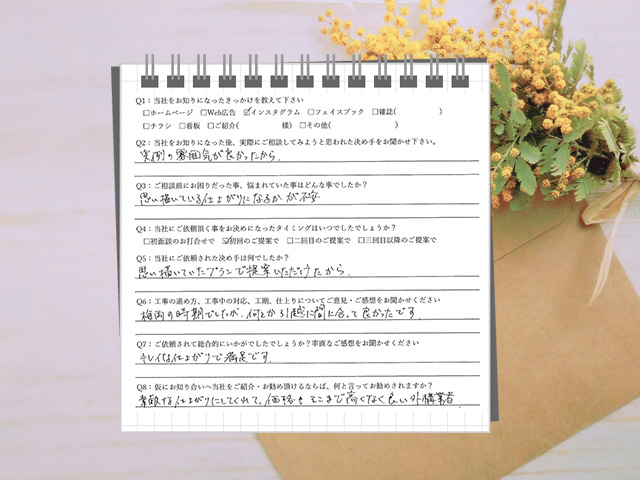 Q1：当社をお知りになったきっかけを教えて下さい
□ホームページ □Web広告 ☑インスタグラム □フェイスブック □雑誌(　　　)
□チラシ □看板 □ご紹介(　　　様) □その他(　　　)
Q2：当社をお知りになった後、実際にご相談してみようと思われた決め手をお聞かせ下さい。
実例の雰囲気が良かったから.
Q3：ご相談前にお困りだった事、悩まれていた事はどんな事でしたか？
思い描いている仕上がりになるかが不安
Q4：当社にご依頼頂く事をお決めになったタイミングはいつでしたでしょうか？
□初面談のお打合せで ☑初回のご提案で □二回目のご提案で □三回目以降のご提案で
Q5：当社にご依頼された決め手は何でしたか？
思い描いていたプランで提案いただけたから.
Q6：工事の進め方、工事中の対応、工期、仕上りについてご意見・ご感想をお聞かせください
梅雨の時期でしたが、何とか引越に間に合って良かったです.
Q7：ご依頼されて総合的にいかがでしたでしょうか？率直なご感想をお聞かせください
キレイな仕上がりで満足です.
Q8：仮にお知り合いへ当社をご紹介・お勧め頂けるならば、何と言ってお勧めされますか？
素敵な仕上がりにしてくれて、価格もそこまで高くなく良い外構業者.